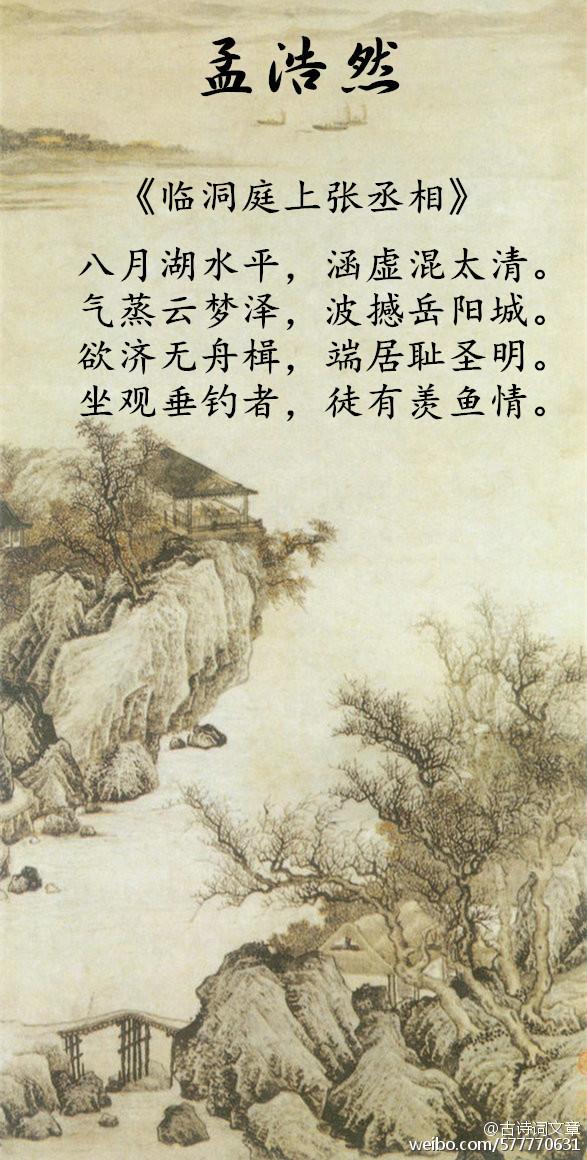 孟浩然
《临洞庭上张丞相》
八月湖水平，涵虚混太清。
气蒸云梦泽，波撼岳阳城。
欲济无舟楫，端居耻圣明。
坐观垂钓者，徒有羡鱼情。
@古诗词文章
weibo.com/577770631